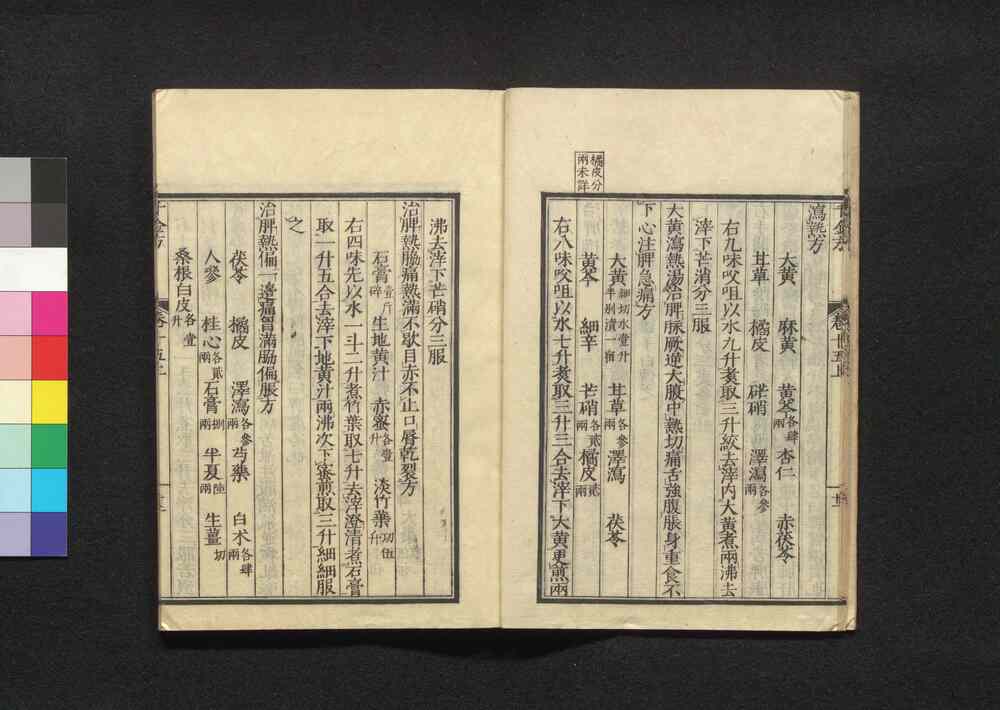 橘皮分
兩未詳
瀉熱方
大黃 麻黃 黃芩各肆兩 杏仁 赤茯苓
甘草 橘皮 芒硝 澤瀉各參兩
右九味㕮咀以水九升煑取三升絞去滓內大黃煮兩沸去
滓下芒消分三服
大黃瀉熱湯治脾脉厥逆大腹中熱切痛舌強腹脹身重食不
下心注脾急痛方
大黃細切水壹升半別漬一宿 甘草各參兩 澤瀉 茯苓
黃芩 細辛 芒硝各貳兩 橘皮貳兩
右八味㕮咀以水七升煑取三升三合去滓下大黃更煎兩
沸去滓下芒硝分三服
治脾熱脇痛熱滿不歇目赤不止口唇乾裂方
石膏壹斤碎 生地黃汁 赤蜜各壹升 淡竹葉切伍升
右四味先以水一斗二升煮竹葉取七升去滓澄清煮石膏
取一升五合去滓下地黃汁兩沸次下蜜煎取三升細細服
之
治脾熱偏一邊痛胷滿脇偏脹方
茯苓 橘皮 澤瀉各參兩 芍藥 白术各肆兩
人參 桂心各貳兩 石膏捌兩 半夏陸兩 生薑切
桑根白皮各壹升